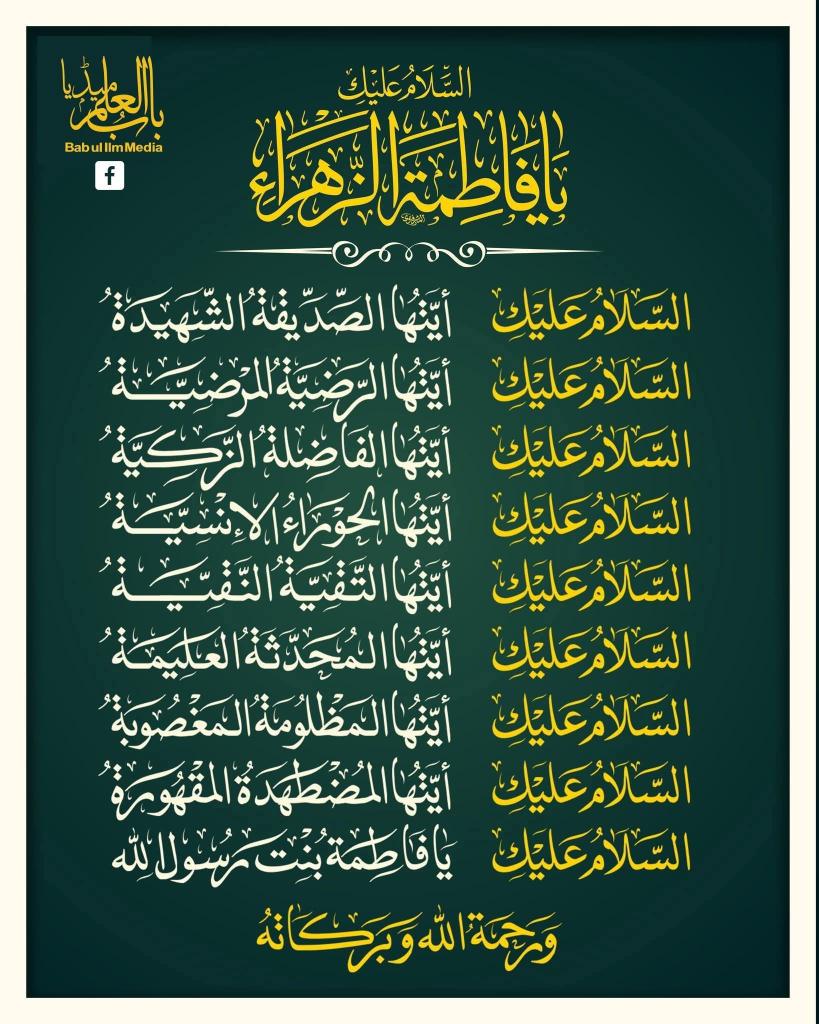 باب العلم میڈیا
Bab ul Ilm Media
f
السَّلَامُ عَلَيْكِ
يَا فَاطِمَةَ الزَّهْرَاءِ
السَّلَامُ عَلَيْكِ أَيَّتُهَا الصِّدِّيقَةُ الشَّهِيدَةُ
السَّلَامُ عَلَيْكِ أَيَّتُهَا الرَّضِيَّةُ الْمَرْضِيَّةُ
السَّلَامُ عَلَيْكِ أَيَّتُهَا الْفَاضِلَةُ الزَّكِيَّةُ
السَّلَامُ عَلَيْكِ أَيَّتُهَا الْحَوْرَاءُ الْإِنْسِيَّةُ
السَّلَامُ عَلَيْكِ أَيَّتُهَا التَّقِيَّةُ النَّقِيَّةُ
السَّلَامُ عَلَيْكِ أَيَّتُهَا الْمُحَدَّثَةُ الْعَلِيمَةُ
السَّلَامُ عَلَيْكِ أَيَّتُهَا الْمَظْلُومَةُ الْمَغْصُوبَةُ
السَّلَامُ عَلَيْكِ أَيَّتُهَا الْمُضْطَهَدَةُ الْمَقْهُورَةُ
السَّلَامُ عَلَيْكِ يَا فَاطِمَةُ بِنْتَ رَسُولِ اللهِ
وَرَحْمَةُ اللهِ وَبَرَكَاتُهُ